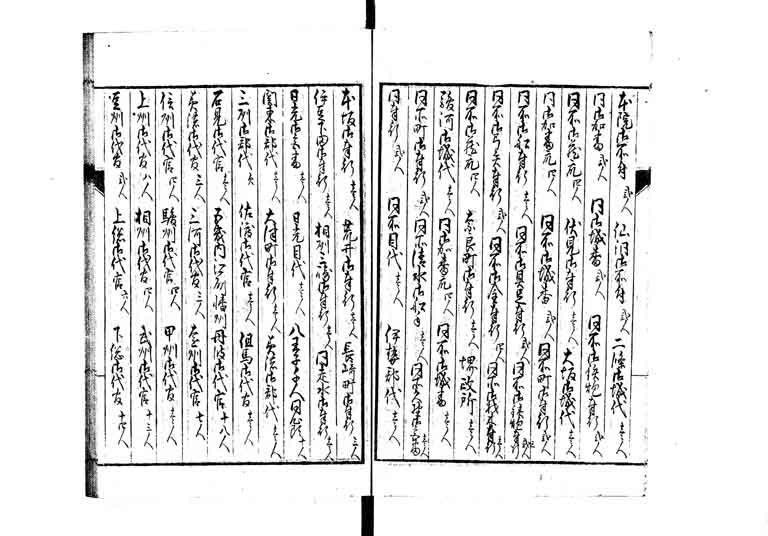 本院御所付 弐人 仙洞御所付 弐人 二条御城代 壱人
同御加番 弐人 同御城番 弐人 同所御鉄炮奉行 弐人
同所御蔵元 四人 伏見御奉行 壱人 大坂御城代 壱人
同御加番元 四人 同所御城番 弐人 同所町御奉行 弐人
同所御船奉行 壱人 同所御具足奉行 同所御鉄炮奉行
同所御弓矢奉行 弐人 同所御金奉行 四人 同所御材木奉行 壱人
同所御蔵元 四人 奈良町御奉行 壱人 堺政所 壱人
駿河御城代 壱人 同御加番元 四人 同所御城番 壱人
同所町御奉行 弐人 同所清水御船手 壱人
同奉行 弐人 同所目代 壱人 伊勢郡代 壱人
本坂御奉行 壱人 荒井御奉行 壱人 長崎町御奉行 三人
伊豆下田御奉行 壱人 相州三崎御奉行 壱人 同走水御奉行 壱人
日光御番 壱人 日光目代 壱人 八王子千人同頭 十人
関東御郡代 壱人 大津町御奉行 壱人 美濃御郡代 壱人
三州御郡代 佐渡御代官 壱人 但馬御代官 壱人
石見御代官 壱人 五畿内江州播州丹波御代官 十八人
美濃御代官 三人 三河御代官 三人 遠州御代官 七人
信州御代官 四人 駿州御代官 四人 甲州御代官 壱人
上州御代官 八人 相州御代官 四人 武州御代官 十三人
豆州御代官 弐人 上総御代官 六人 下総御代官 十七人